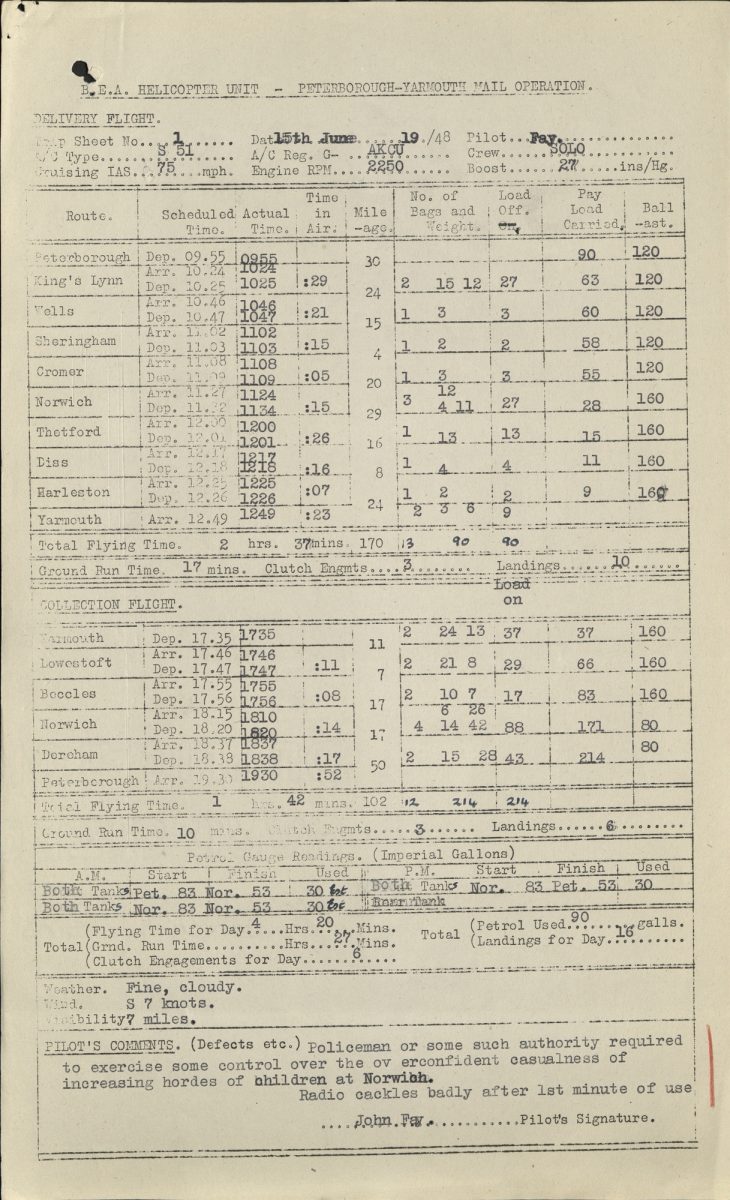 B.E.A. HELICOPTER UNIT - PETERBOROUGH-YARMOUTH MAIL OPERATION.
DELIVERY FLIGHT.
Trip Sheet No... 1 ...... Date 15th June ..... 19./48 Pilot... Fay.
A/C Type... S 51 A/C Reg. G- ... AKCU Crew... SOLO
Cruising IAS... 75 ...mph. Engine RPM.... 2250 Boost... 27 .....ins/Hg.
Route. Scheduled Time. Actual Time. Time in Air. Mile-age. No. of Bags and Weight. Load Off. On. Pay Load Carried. Ball-ast.
Peterborough Dep. 09.55 0955 30 90 120
King's Lynn Arr. 10.24 1024
Dep. 10.25 1025 :29 24 2 15 12 27 63 120
Wells Arr. 10.46 1046
Dep. 10.47 1047 :21 15 1 3 3 60 120
Sheringham Arr. 11.02 1102
Dep. 11.03 1103 :15 4 1 2 2 58 120
Cromer Arr. 11.08 1108
Dep. 11.09 1109 :05 20 1 3 3 55 120
Norwich Arr. 11.27 1124 12
Dep. 11.32 1134 :15 29 3 4 11 27 28 160
Thetford Arr. 12.00 1200
Dep. 12.01 1201 :26 16 1 13 13 15 160
Diss Arr. 12.17 1217
Dep. 12.18 1218 :16 8 1 4 4 11 160
Harleston Arr. 12.25 1225
Dep. 12.26 1226 :07 24 1 2 2 9 160
Yarmouth Arr. 12.49 1249 :23 2 3 6 9
Total Flying Time. 2 hrs. 37 mins. 170 13 90 90
Ground Run Time. 17 mins. Clutch Engmts.... 3 ........ Landings....... 10 ......
Load
COLLECTION FLIGHT. on
Yarmouth Dep. 17.35 1735 11 2 24 13 37 37 160
Lowestoft Arr. 17.46 1746
Dep. 17.47 1747 :11 7 2 21 8 29 66 160
Beccles Arr. 17.55 1755
Dep. 17.56 1756 :08 17 2 10 7 17 83 160
Norwich Arr. 18.15 1810 6 26
Dep. 18.20 1820 :14 17 4 14 42 88 171 80
Dereham Arr. 18.37 1837 80
Dep. 18.38 1838 :17 50 2 15 28 43 214
Peterborough Arr. 19.30 1930 :52
Total Flying Time. 1 hrs. 42 mins. 102 12 214 214
Ground Run Time. 10 mins. Clutch Engmts..... 3 ...... Landings...... 6 .........
Petrol Gauge Readings. (Imperial Gallons)
A.M. Start Finish Used P.M. Start Finish Used
Both Tanks Pet. 83 Nor. 53 30 Both Tanks Nor. 83 Pet. 53 30
Both Tanks Nor. 83 Nor. 53 30 Rear Tank
(Flying Time for Day. 4 ...Hrs. 20 ...Mins. (Petrol Used. 90 .......galls.
Total (Grnd. Run Time..........Hrs... 27 .Mins. Total (Landings for Day. 16
(Clutch Engagements for Day....... 6
Weather. Fine, cloudy.
Wind. S 7 knots.
Visibility 7 miles.
PILOT'S COMMENTS. (Defects etc.) Policeman or some such authority required
to exercise some control over the ov erconfident casualness of
increasing hordes of children at Norwich.
Radio cackles badly after 1st minute of use
.... John Fay. ............Pilot's Signature.